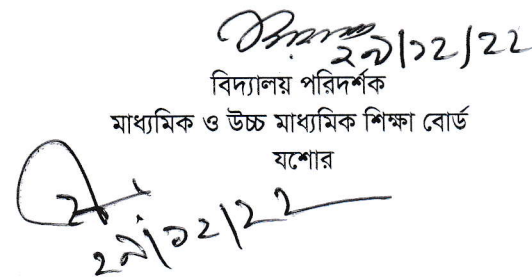 ২৯/১২/২২
বিদ্যালয় পরিদর্শক
মাধ্যমিক ও উচ্চ মাধ্যমিক শিক্ষা বোর্ড
যশোর
২৯/১২/২২